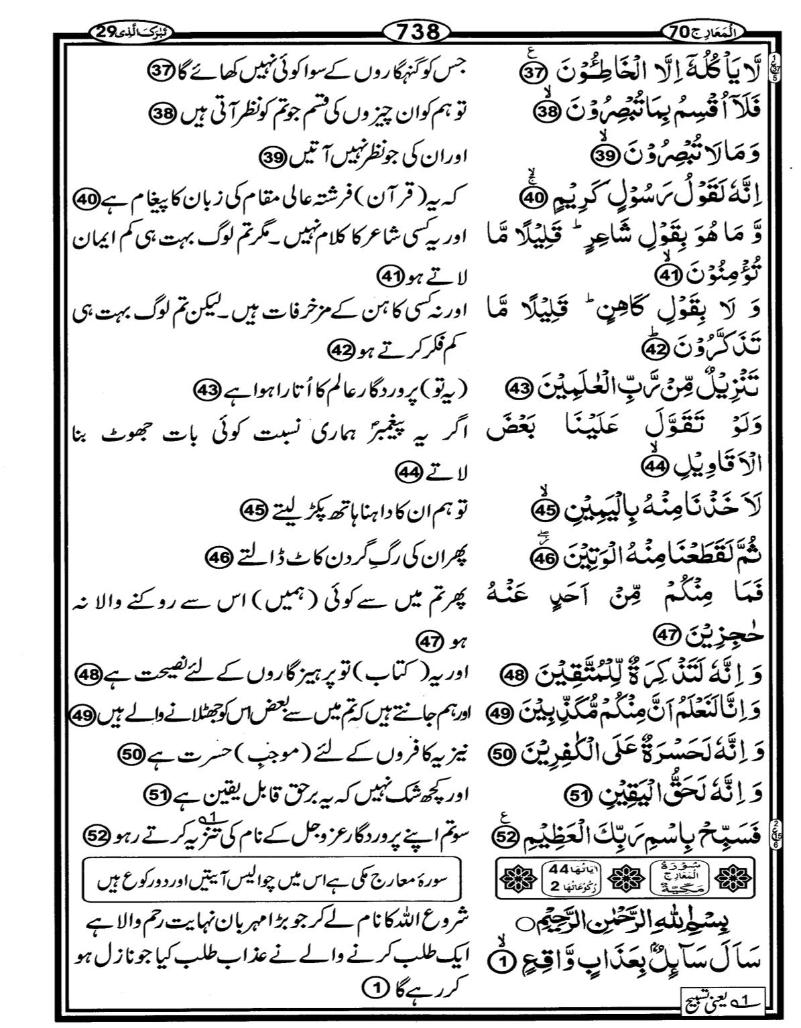 تبٰرک الذی 29 738 المعارج 70
لَّا یَاۡکُلُہٗۤ اِلَّا الۡخَاطِـُٔوۡنَ ﴿37﴾ جس کو گنہگاروں کے سوا کوئی نہیں کھائے گا ﴿37﴾
فَلَاۤ اُقۡسِمُ بِمَا تُبۡصِرُوۡنَ ﴿38﴾ تو ہم کو ان چیزوں کی قسم جو تم کو نظر آتی ہیں ﴿38﴾
وَ مَا لَا تُبۡصِرُوۡنَ ﴿39﴾ اور ان کی جو نظر نہیں آتیں ﴿39﴾
اِنَّہٗ لَقَوۡلُ رَسُوۡلٍ کَرِیۡمٍ ﴿40﴾ کہ یہ (قرآن) فرشتہ عالی مقام کی زبان کا پیغام ہے ﴿40﴾
وَّ مَا ہُوَ بِقَوۡلِ شَاعِرٍ ؕ قَلِیۡلًا مَّا اور یہ کسی شاعر کا کلام نہیں۔ مگر تم لوگ بہت ہی کم ایمان
تُؤۡمِنُوۡنَ ﴿41﴾ لاتے ہو ﴿41﴾
وَ لَا بِقَوۡلِ کَاہِنٍ ؕ قَلِیۡلًا مَّا اور نہ کسی کاہن کے مزخرفات ہیں۔ لیکن تم لوگ بہت ہی
تَذَکَّرُوۡنَ ﴿42﴾ کم فکر کرتے ہو ﴿42﴾
تَنۡزِیۡلٌ مِّنۡ رَّبِّ الۡعٰلَمِیۡنَ ﴿43﴾ (یہ تو) پروردگار عالم کا اُتارا ہوا ہے ﴿43﴾
وَلَوۡ تَقَوَّلَ عَلَیۡنَا بَعۡضَ اگر یہ پیغمبرؐ ہماری نسبت کوئی بات جھوٹ بنا
الۡاَقَاوِیۡلِ ﴿44﴾ لاتے ﴿44﴾
لَاَخَذۡنَا مِنۡہُ بِالۡیَمِیۡنِ ﴿45﴾ تو ہم ان کا داہنا ہاتھ پکڑ لیتے ﴿45﴾
ثُمَّ لَقَطَعۡنَا مِنۡہُ الۡوَتِیۡنَ ﴿46﴾ پھر ان کی رگِ گردن کاٹ ڈالتے ﴿46﴾
فَمَا مِنۡکُمۡ مِّنۡ اَحَدٍ عَنۡہُ پھر تم میں سے کوئی (ہمیں) اس سے روکنے والا نہ
حٰجِزِیۡنَ ﴿47﴾ ہو ﴿47﴾
وَ اِنَّہٗ لَتَذۡکِرَۃٌ لِّلۡمُتَّقِیۡنَ ﴿48﴾ اور یہ (کتاب) تو پرہیزگاروں کے لئے نصیحت ہے ﴿48﴾
وَ اِنَّا لَنَعۡلَمُ اَنَّ مِنۡکُمۡ مُّکَذِّبِیۡنَ ﴿49﴾ اور ہم جانتے ہیں کہ تم میں سے بعض اس کو جھٹلانے والے ہیں ﴿49﴾
وَ اِنَّہٗ لَحَسۡرَۃٌ عَلَی الۡکٰفِرِیۡنَ ﴿50﴾ نیز یہ کافروں کے لئے (موجبِ) حسرت ہے ﴿50﴾
وَ اِنَّہٗ لَحَقُّ الۡیَقِیۡنِ ﴿51﴾ اور کچھ شک نہیں کہ یہ برحق قابل یقین ہے ﴿51﴾
فَسَبِّحۡ بِاسۡمِ رَبِّکَ الۡعَظِیۡمِ ﴿52﴾ سو تم اپنے پروردگار عزوجل کے نام کی تنزیہ کرتے رہو ﴿52﴾
سُوۡرَۃُ الۡمَعَارِجِ مَکِّیَّۃٌ اٰیَاتُہَا 44 رُکُوۡعَاتُہَا 2 سورۂ معارج مکی ہے اس میں چوالیس آیتیں اور دو رکوع ہیں
بِسۡمِ اللّٰہِ الرَّحۡمٰنِ الرَّحِیۡمِ شروع اللہ کا نام لے کر جو بڑا مہربان نہایت رحم والا ہے
سَاَلَ سَآئِلٌۢ بِعَذَابٍ وَّاقِعٍ ﴿1﴾ ایک طلب کرنے والے نے عذاب طلب کیا جو نازل ہو
کر رہے گا ﴿1﴾
1؎ یعنی تسبیح